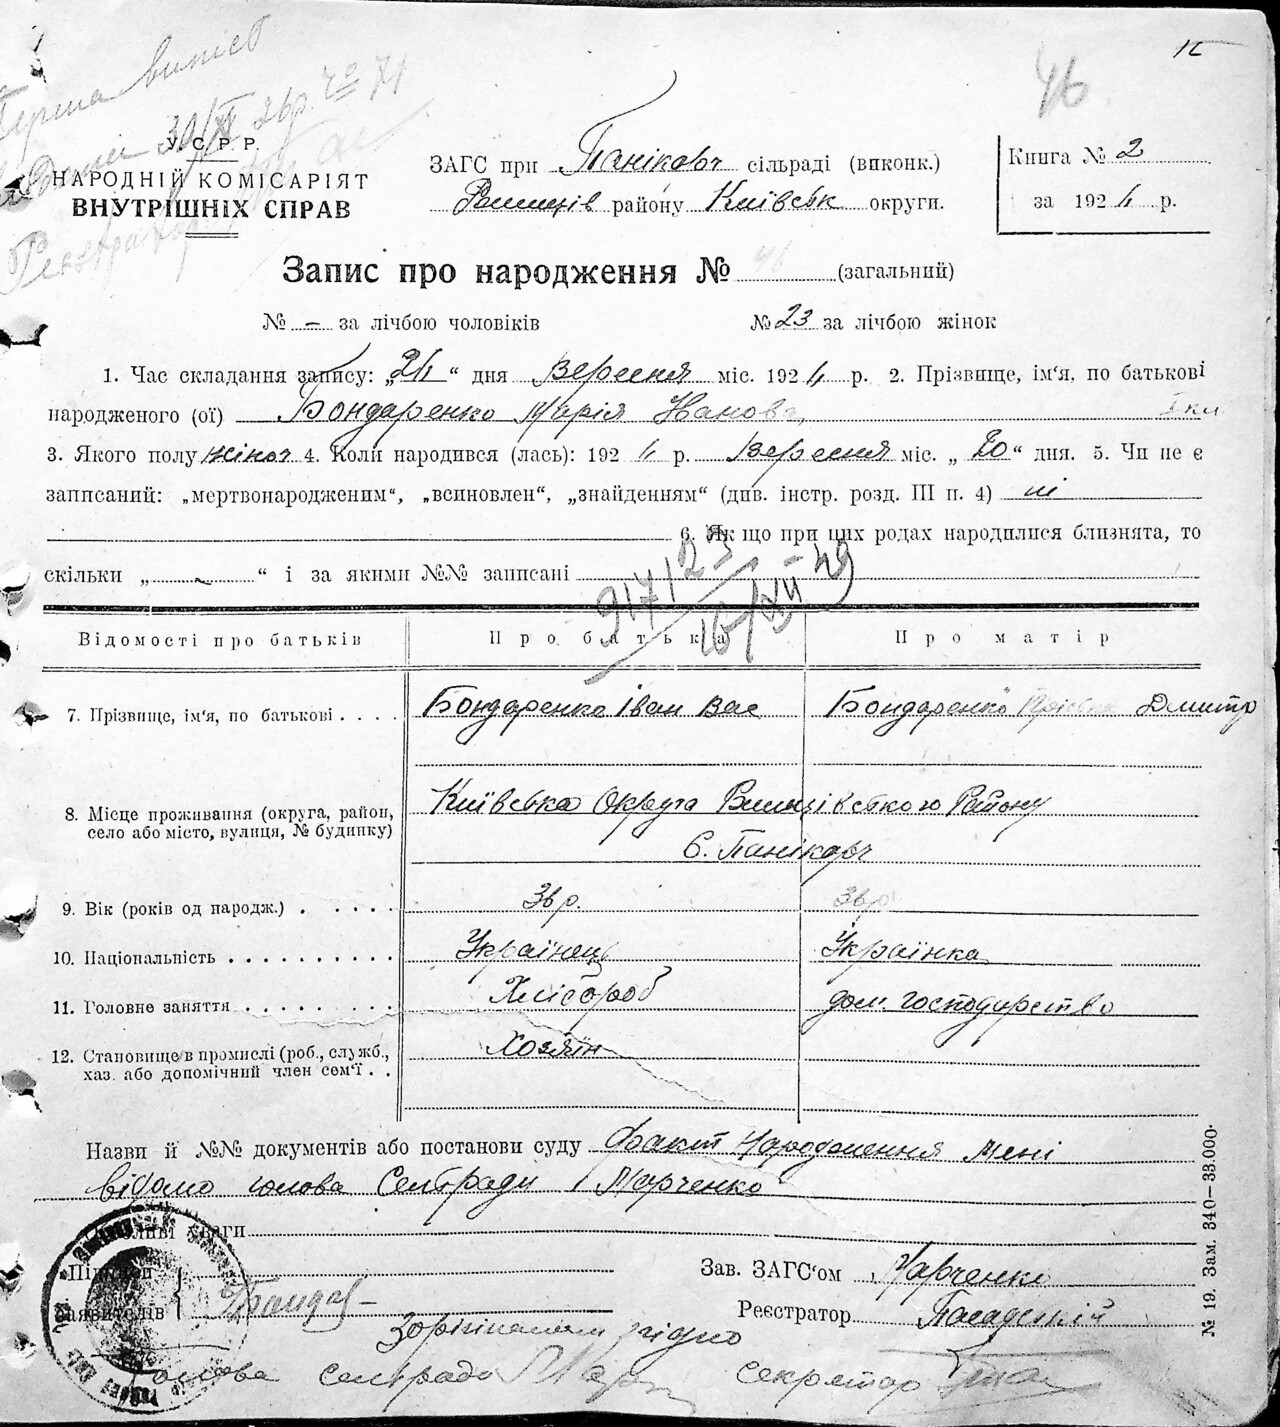 46
У.С.Р.Р.
НАРОДНІЙ КОМІСАРІЯТ
ВНУТРІШНІХ СПРАВ
ЗАГС при Паніковч сільраді (виконк.)
району Київськ округи.
Книга № 2
за 1924 р.
Запис про народження № 46 (загальний)
№ – за лічбою чоловіків № 23 за лічбою жінок
1. Час складання запису: „24“ дня Вересня міс. 1924 р. 2. Прізвище, ім‘я, по батькові
народженого (ої) Бондаренко Марія Іванов
3. Якого полу жіноч 4. Коли народився (лась): 1924 р. Вересня міс. „20“ дня. 5. Чи не є
записаний: „мертвонародженим“, „всиновлен“, „знайденням“ (див. інстр. розд. III п. 4) ні
6. Якщо при цих родах народилися близнята, то
скільки „ “ і за якими №№ записані
Відомості про батьків Про батька Про матір
7. Прізвище, ім‘я, по батькові Бондаренко Іван Вас Бондаренко Дмитр
8. Місце проживання (округа, район, село або місто, вулиця, № будинку) Київська Округа Району
С. Паніковч
9. Вік (років од народж.) 36 р. 36 р
10. Національність Українець Українка
11. Головне заняття Хлібороб дом. господарство
12. Становище в промислі (роб., служб., Хозяїн
хаз. або допомічний член сем‘ї
Назви й №№ документів або постанови суду Факт народження мені
відомо голова Сельради Марченко
уваги
Зав. ЗАГС‘ом Марченко
заявителів Реєстратор
З оригіналом згідно
Голова сельради секретар
№ 19. Зам. 340–33.000.